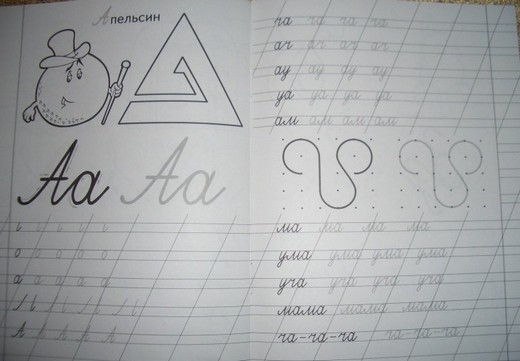 Апельсин
Аа Аа
о о о о о
а а а а а
А А А А А
ча ча ча ча
ач ач ач ач
ау ау ау ау
уа уа уа уа
ам ам ам ам
ма ма ма ма
ума ума ума ума
уча уча уча уча
мама мама мама
ча-ча-ча ча-ча-ча